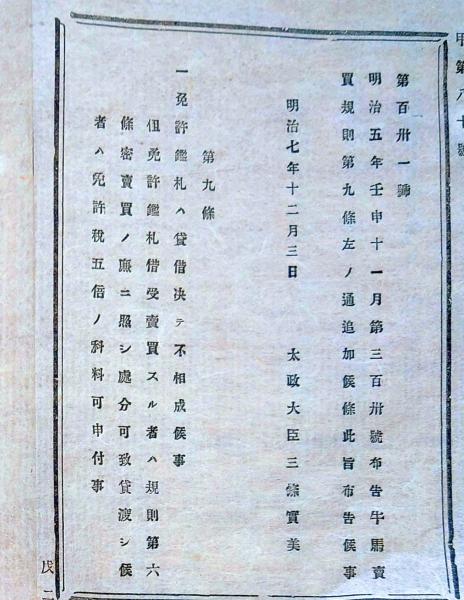 甲第八十號
第百卅一號
明治五年壬申十一月第三百卅號布告牛馬賣
買規則第九條左ノ通追加候條此旨布告候事
明治七年十二月三日　太政大臣三條實美
第九條
一免許鑑札ハ貸借决テ不相成候事
但免許鑑札借受賣買スル者ハ規則第六
條密賣買ノ廉ニ照シ處分可致貸渡シ候
者ハ免許税五倍ノ科料可申付事
戊二